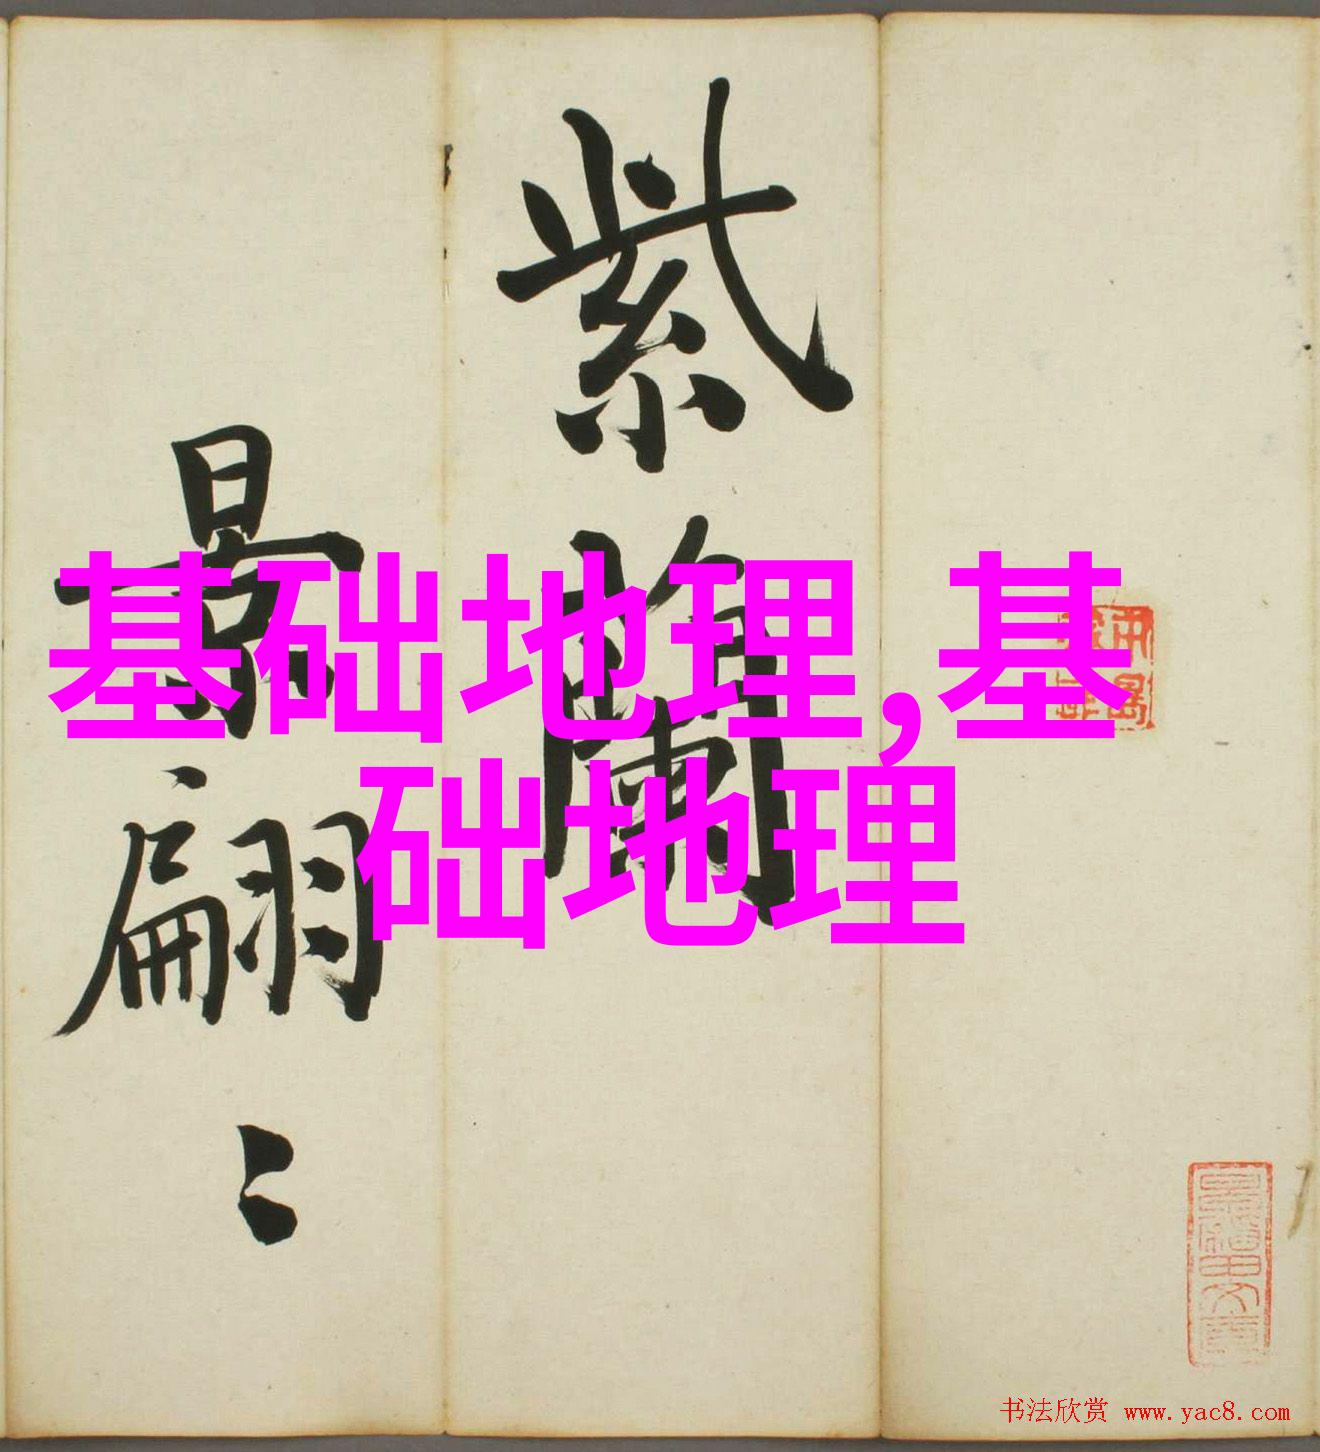 基础地理,基
础地理
紫蘭
景翩〻
书法欣赏 www.yac8.com